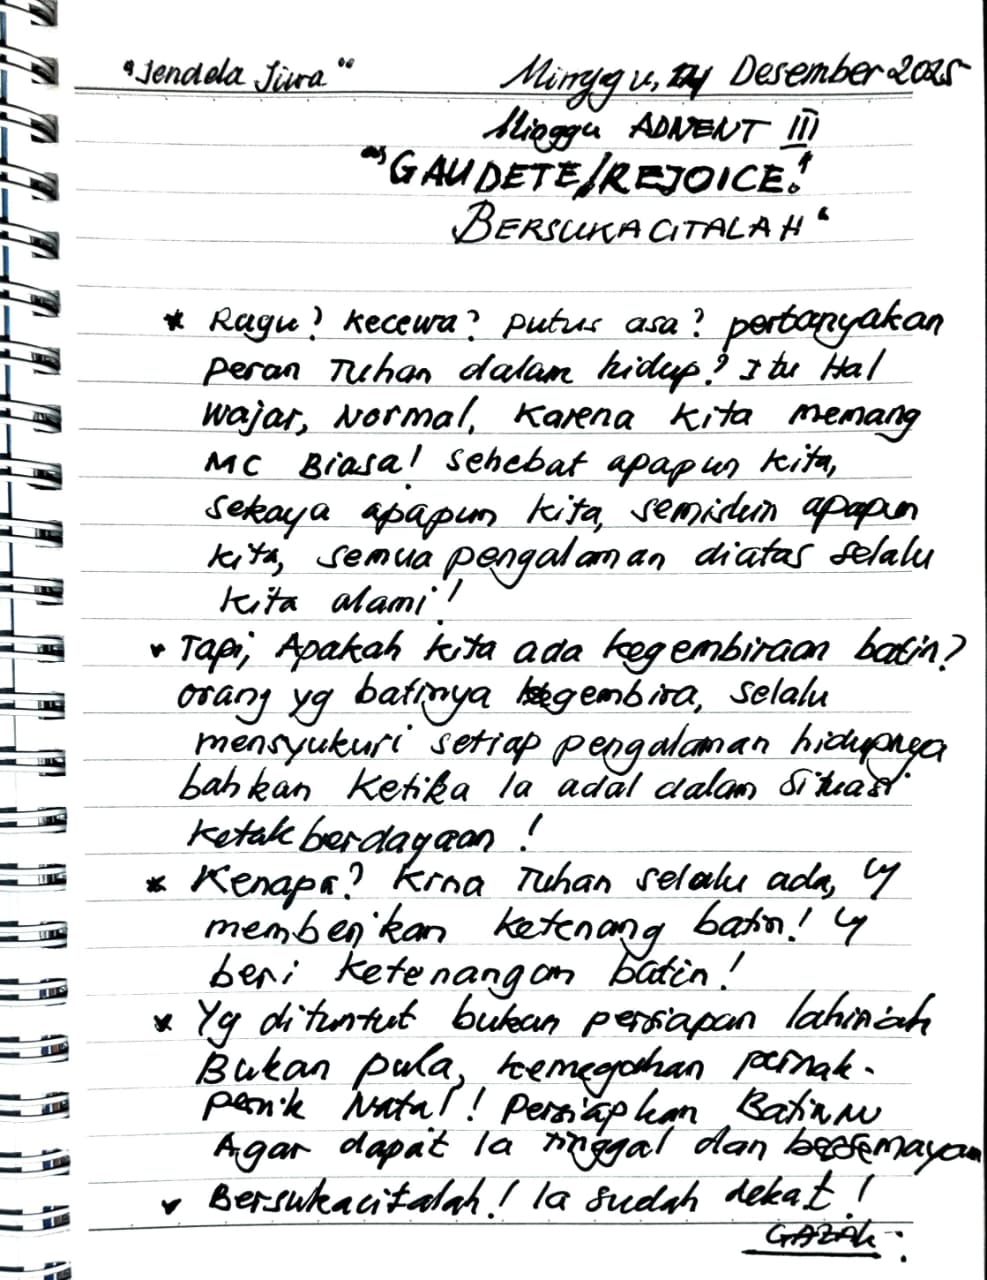 "Jendela Jiwa" Minggu, 14 Desember 2025
Minggu ADVENT III
"GAUDETE/REJOICE!
BERSUKACITALAH"
* Ragu? Kecewa? Putus asa? pertanyakan
peran Tuhan dalam hidup? Itu Hal
wajar, Normal, Karena kita memang
MC Biasa! Sehebat apapun kita,
sekaya apapun kita, semiskin apapun
kita, semua pengalaman diatas selalu
kita alami!
Tapi, Apakah kita ada kegembiraan batin?
orang yg batinya gembira, selalu
mensyukuri setiap pengalaman hidupnya
bahkan ketika Ia adal dalam situasi
ketakberdayaan!
* Kenapa? Krna Tuhan selalu ada, yg
memberikan ketenang batin! yg
beri ketenangan batin!
* Yg dituntut bukan persiapan lahiriah
Bukan pula, kemegahan pernak-
pernik Natal! Persiapkan Batinmu
Agar dapat Ia tinggal dan bersemayam
Bersukacitalah! Ia sudah dekat!
GAZAK